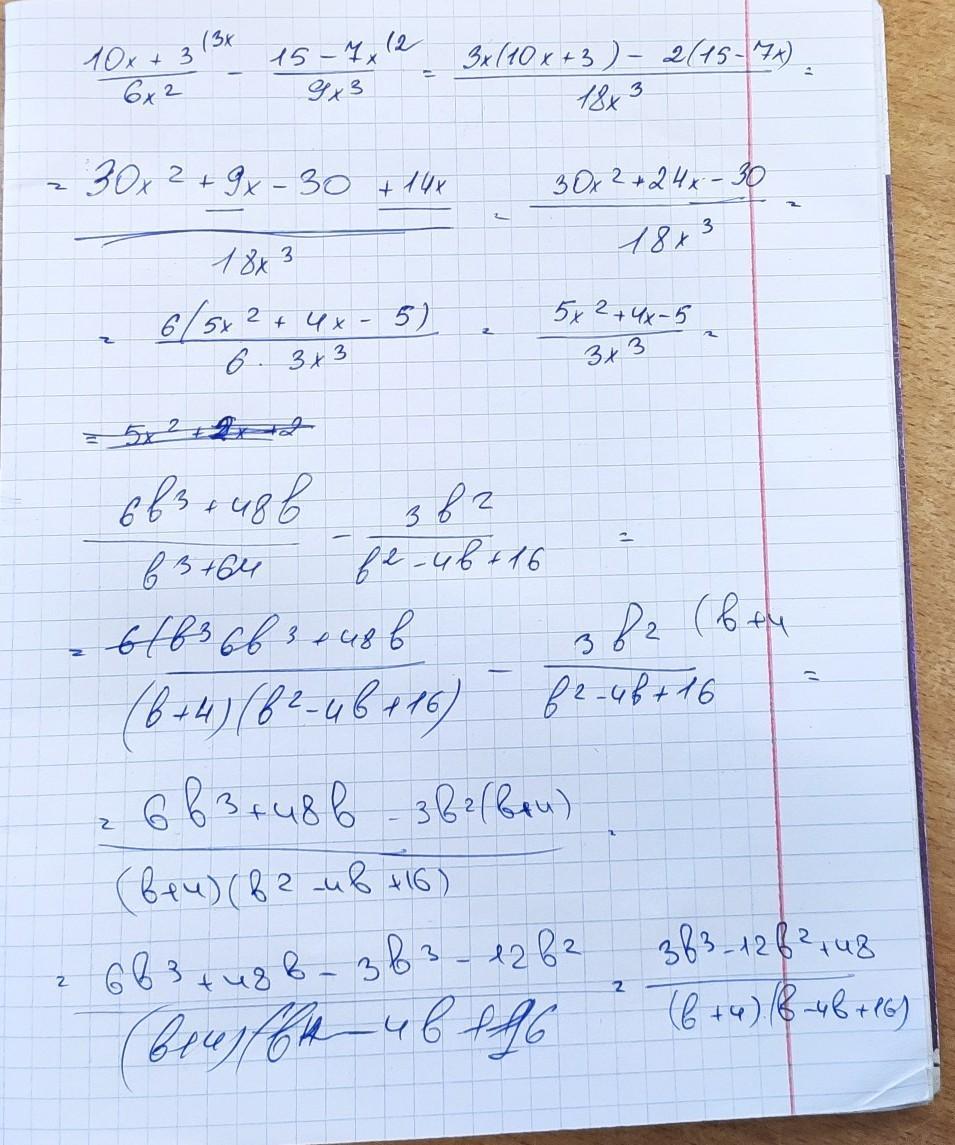 (10x + 3)/(6x²) (3x - (15 - 7x)/(9x³) (2 = (3x(10x+3) - 2(15-7x))/(18x³) =
= (30x² + 9x - 30 + 14x)/(18x³) = (30x² + 24x - 30)/(18x³) =
= (6(5x² + 4x - 5))/(6 · 3x³) = (5x² + 4x - 5)/(3x³) =
= 5x² + 2x + 2
(6b³ + 48b)/(b³ + 64) - (3b²)/(b² - 4b + 16) =
= (6(b³ 6b³ + 48b)/((b+4)(b² - 4b + 16)) - (3b²)/(b² - 4b + 16) (b+4 =
= (6b³ + 48b - 3b²(b+4))/((b+4)(b² - 4b + 16)) =
= (6b³ + 48b - 3b³ - 12b²)/((b+4)(b² - 4b + 16) = (3b³ - 12b² + 48)/((b+4)·(b - 4b + 16))